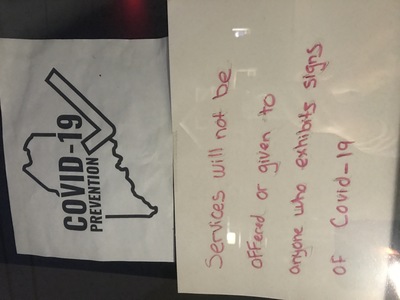 COVID-19
PREVENTION
Services will not be
offered or given to
anyone who exhibits signs
of Covid-19